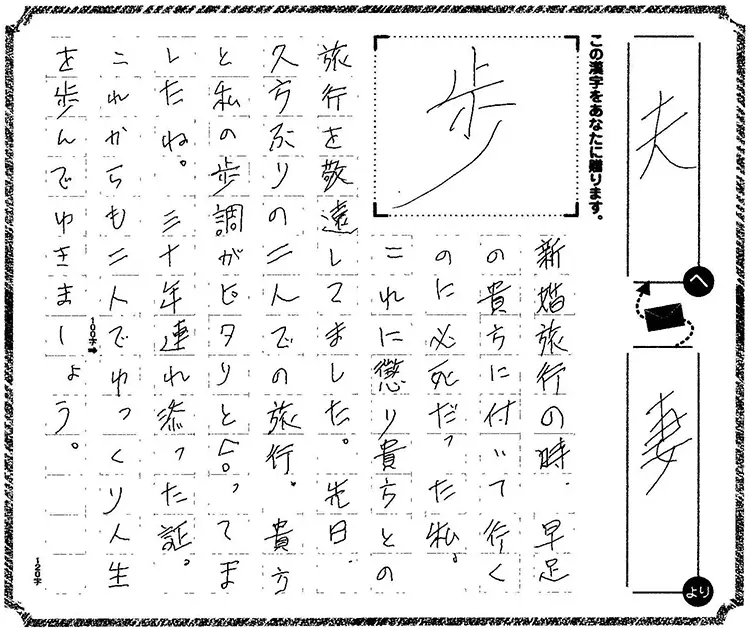 夫
へ
妻
より
この漢字をあなたに贈ります。
歩
新婚旅行の時、早足
の貴方に付いて行く
のに必死だった私。
これに懲り貴方との
旅行を敬遠してました。先日、
久方ぶりの二人での旅行。貴方
と私の歩調がピタリと合ってま
したね。三十年連れ添った証。
これからも二人でゆっくり人生
100字
を歩んでゆきましょう。
120字